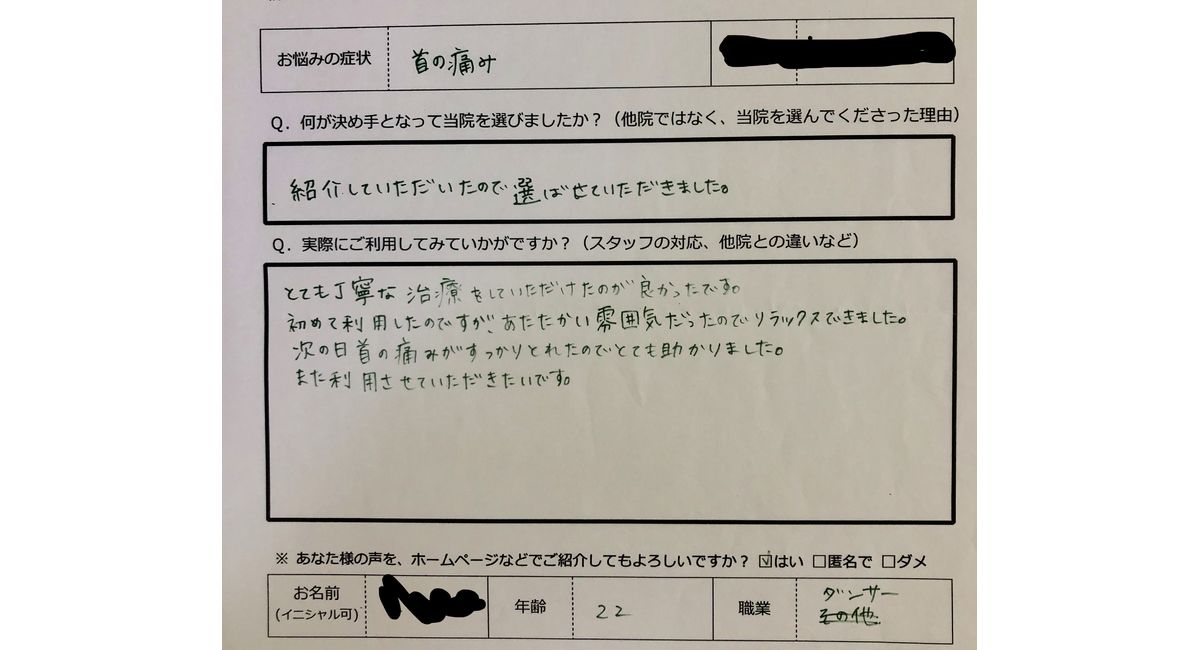 お悩みの症状 首の痛み
Q. 何が決め手となって当院を選びましたか？（他院ではなく、当院を選んでくださった理由）
紹介していただいたので選ばせていただきました。
Q. 実際にご利用してみていかがですか？（スタッフの対応、他院との違いなど）
とても丁寧な治療をしていただけたのが良かったです。
初めて利用したのですが、あたたかい雰囲気だったのでリラックスできました。
次の日首の痛みがすっかりとれたのでとても助かりました。
また利用させていただきたいです。
※ あなた様の声を、ホームページなどでご紹介してもよろしいですか？ ☑はい □匿名で □ダメ
お名前
(イニシャル可)
年齢 22
職業 ダンサー
その他